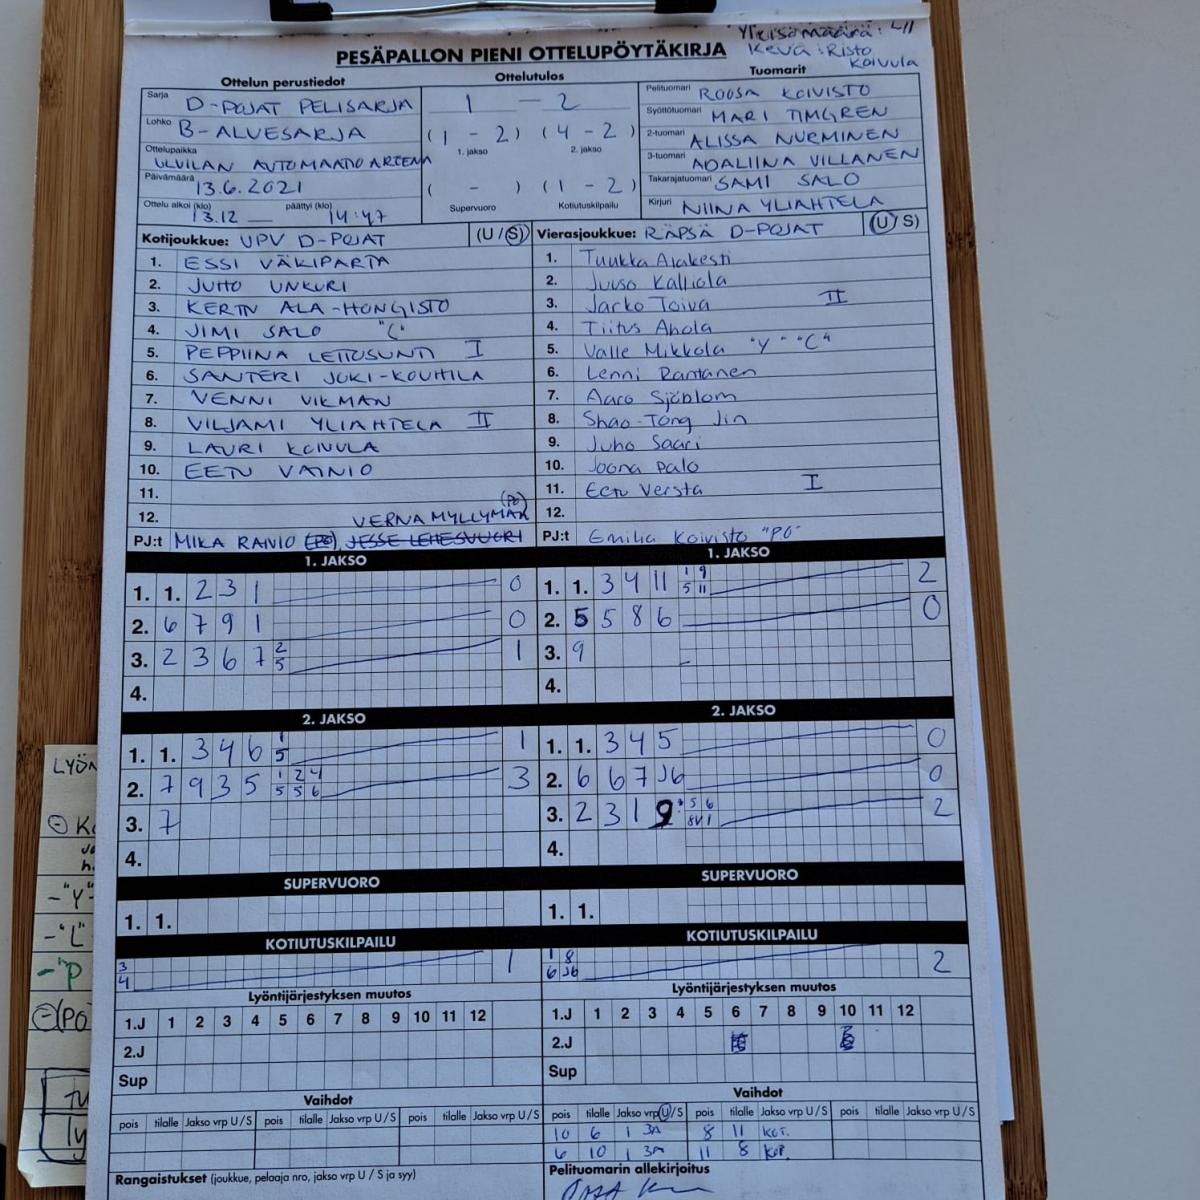 Yleisömäärä: 411
PESÄPALLON PIENI OTTELUPÖYTÄKIRJA
Keva: Risto Koivula
Ottelun perustiedot
Ottelutulos
Tuomarit
Sarja D-POJAT PELISARJA
1 - 2
Pelituomari ROOSA KOIVISTO
Lohko B-ALUESARJA
(1 - 2) (4 - 2)
1. jakso 2. jakso
Syöttötuomari MARI TIMGREN
2-tuomari ALISSA NURMINEN
Ottelupaikka ULVILAN AUTOMAATIO AREENA
3-tuomari ADALIINA VILLANEN
Päivämäärä 13.6.2021
( - ) (1 - 2)
Supervuoro Kotiutuskilpailu
Takarajatuomari SAMI SALO
Ottelu alkoi (klo) 13.12 päättyi (klo) 14:47
Kirjuri NIINA YLIAHTELA
Kotijoukkue: UPV D-POJAT (U/S)
Vierasjoukkue: RÄPSÄ D-POJAT (U/S)
1. ESSI VÄKIPARTA
1. Tuukka Alakesti
2. JUHO UNKURI
2. Juuso Kalliola
3. KERTN ALA-HONGISTO
3. Jarko Toiva II
4. JIMI SALO "C"
4. Tiitus Ahola
5. PEPPIINA LEHTUSUNTI I
5. Valle Mikkola "Y" "C"
6. SANTERI JOKI-KOUHILA
6. Lenni Rantanen
7. VENNI VIKMAN
7. Aaro Sjöblom
8. VILJAMI YLIAHTELA II
8. Shao-Tong Jin
9. LAURI KOIVULA
9. Juho Saari
10. EETU VAINIO
10. Joona Palo
11.
11. Eetu Versta I
12.
12.
VERNA MYLLYMÄK (PÖ)
PJ:t MIKA RAINIO (PÖ), JESSE LEHESVUORI
PJ:t Emilia Koivisto "PÖ"
1. JAKSO
1. JAKSO
1. 1. 2 3 1 0
1. 1. 3 4 11 1 9 2
5 11
2. 6 7 9 1 0
2. 5 5 8 6 0
3. 2 3 6 7 2 1
5
3. 9
4.
4.
2. JAKSO
2. JAKSO
1. 1. 3 4 6 1 1
5
1. 1. 3 4 5 0
2. 7 9 3 5 1 2 4 3
5 5 6
2. 6 6 7 J6 0
3. 7
3. 2 3 1 9 5 6 2
4.
4.
SUPERVUORO
SUPERVUORO
1. 1.
1. 1.
KOTIUTUSKILPAILU
KOTIUTUSKILPAILU
3 1
4
1 8 2
6 J6
Lyöntijärjestyksen muutos
Lyöntijärjestyksen muutos
1.J 1 2 3 4 5 6 7 8 9 10 11 12
1.J 1 2 3 4 5 6 7 8 9 10 11 12
2.J
2.J
Sup
Sup
Vaihdot
Vaihdot
pois tilalle Jakso vrp U/S pois tilalle Jakso vrp U/S pois tilalle Jakso vrp U/S
pois tilalle Jakso vrp U/S pois tilalle Jakso vrp U/S pois tilalle Jakso vrp U/S
10 6 1 3A 8 11 KOT.
6 10 1 3A 11 8 KOP.
Rangaistukset (joukkue, pelaaja nro, jakso vrp U / S ja syy)
Pelituomarin allekirjoitus
LYÖN
-"Y"
-"L"
-"P
(PÖ